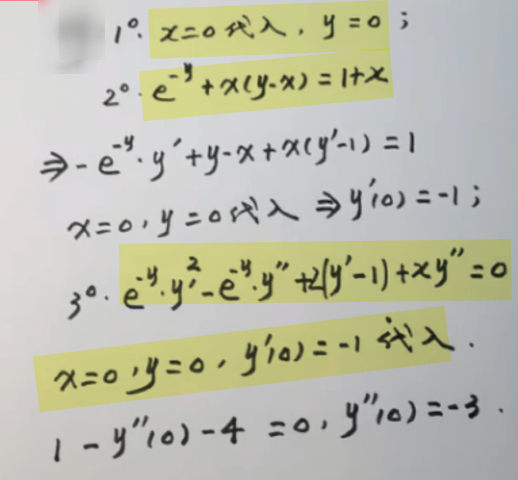 1°. x=0代入, y=0;
2°. e^{-y}+x(y-x)=1+x
⇒-e^{-y}·y′+y-x+x(y′-1)=1
x=0, y=0代入⇒y′(0)=-1;
3°. e^{-y}·y′^2-e^{-y}·y″+2(y′-1)+xy″=0
x=0, y=0, y′(0)=-1代入.
1-y″(0)-4=0, y″(0)=-3.